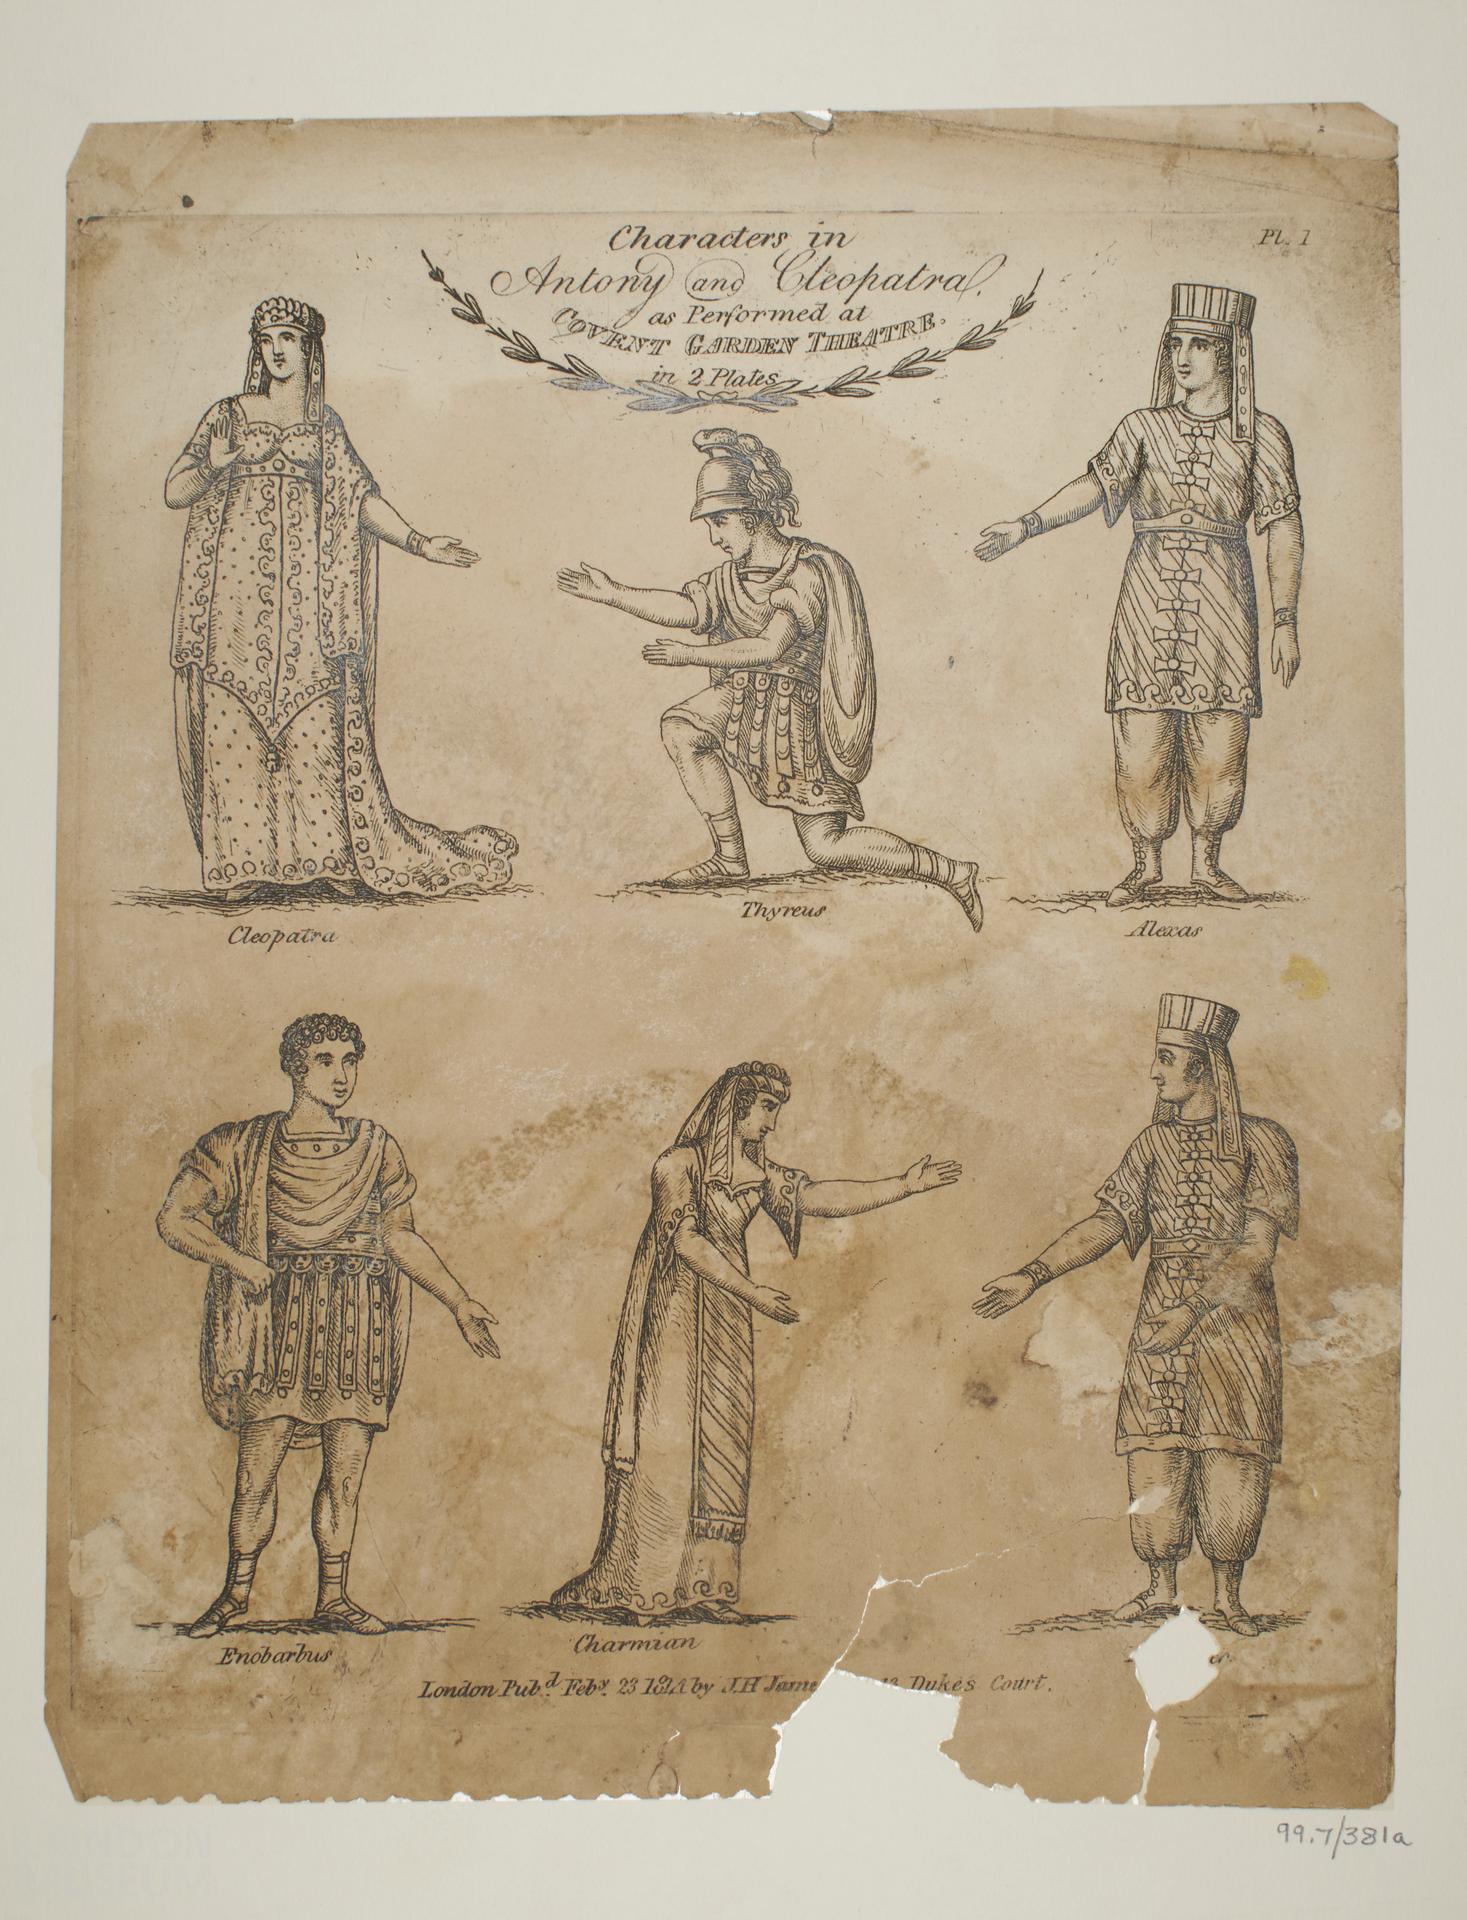 Characters in
Antony and Cleopatra.
as Performed at
COVENT GARDEN THEATRE.
in 2 Plates
Pl. 1
Cleopatra
Thyreus
Alexas
Enobarbus
Charmian
London Pubd. Feby. 23 by J.H Jame Dukes Court.
99.7/381a